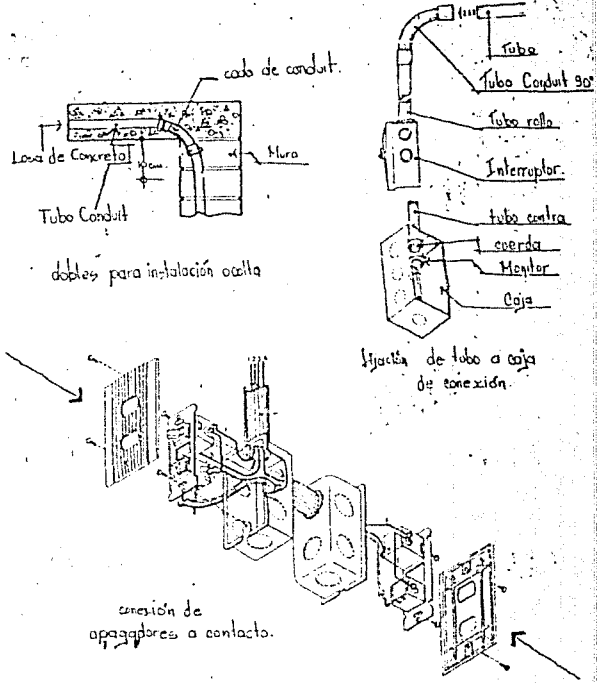 codo de conduit.
Losa de Concreto
Muro
Tubo Conduit
dobles para instalación oculta
Tubo
Tubo Conduit 90°
Tubo rollo
Interruptor.
tubo contra
cuerda
Monitor
Caja
fijación de tubo a caja
de conexión.
conexión de
apagadores a contacto.